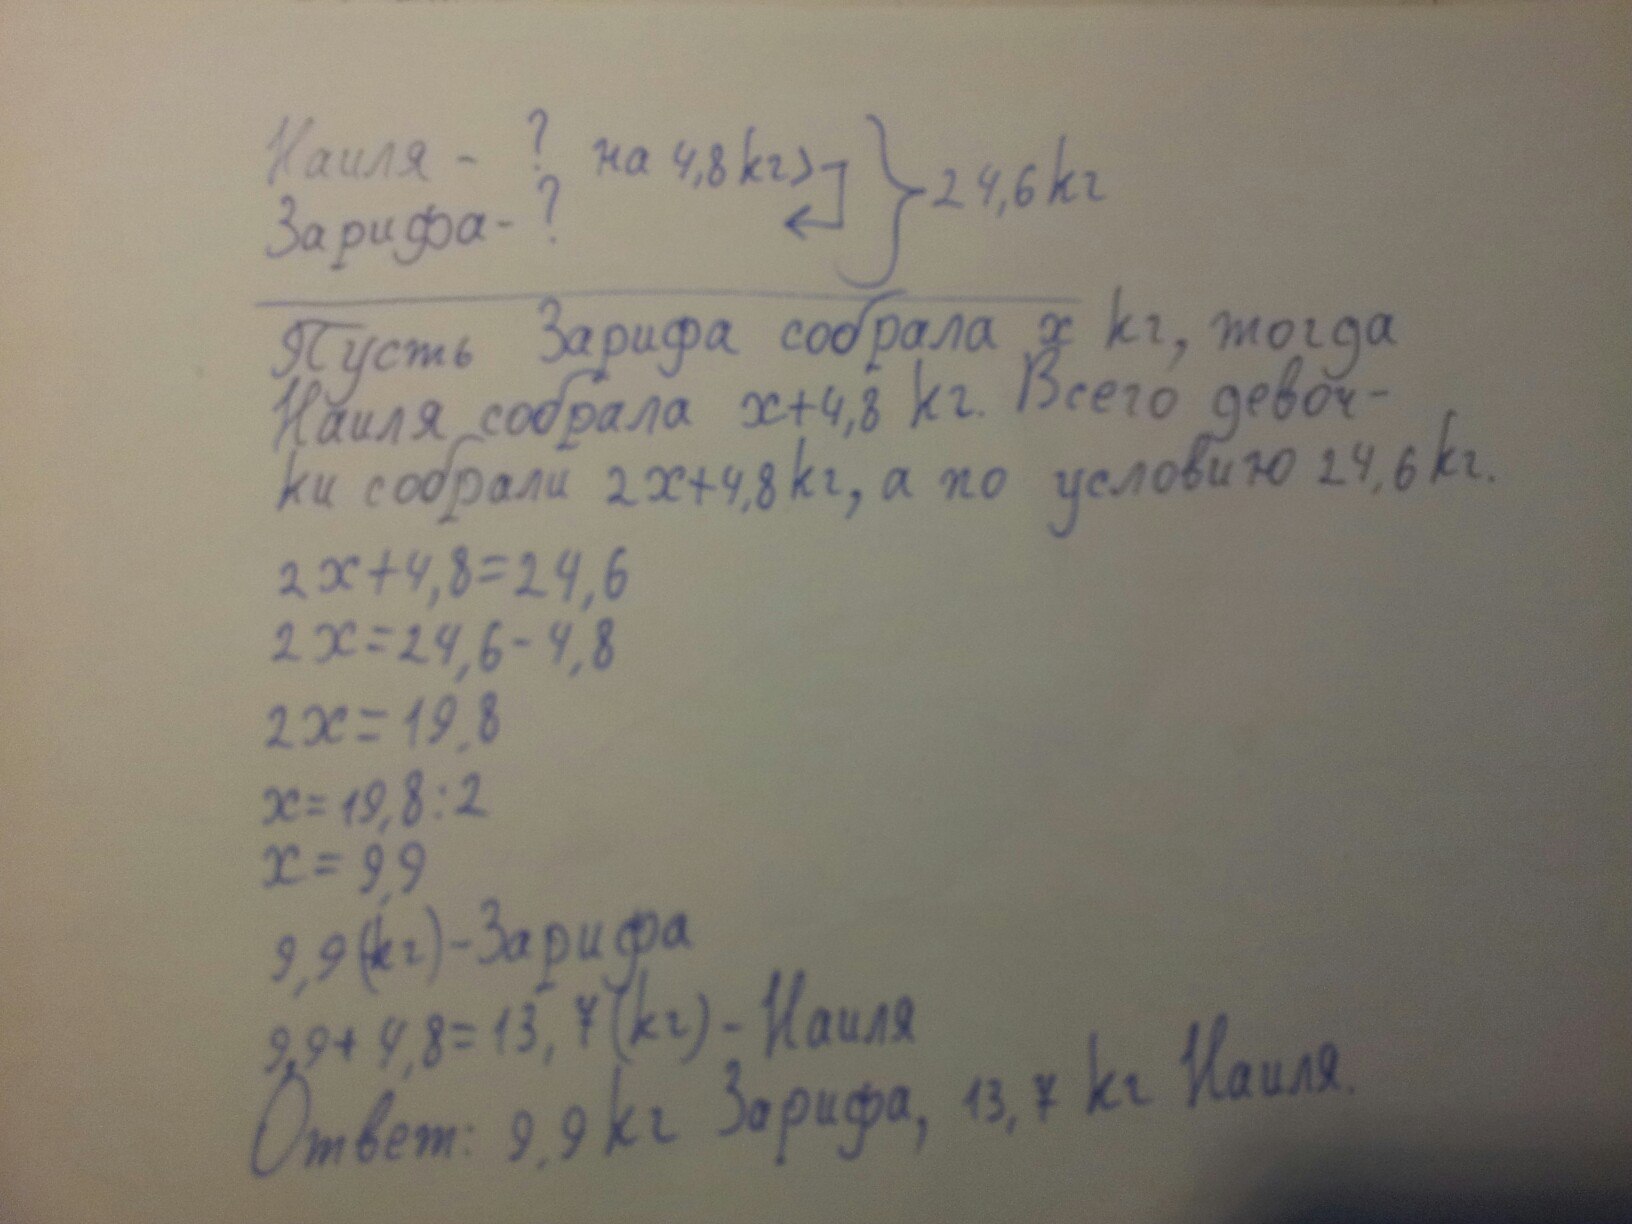 Наиля - ? на 4,8 кг> } 24,6 кг
Зарифа - ?
Пусть Зарифа собрала x кг, тогда
Наиля собрала x+4,8 кг. Всего девоч-
ки собрали 2x+4,8 кг, а по условию 24,6 кг.
2x+4,8=24,6
2x=24,6-4,8
2x=19,8
x=19,8:2
x=9,9
9,9(кг)-Зарифа
9,9+4,8=13,7(кг)-Наиля
Ответ: 9,9 кг Зарифа, 13,7 кг Наиля.